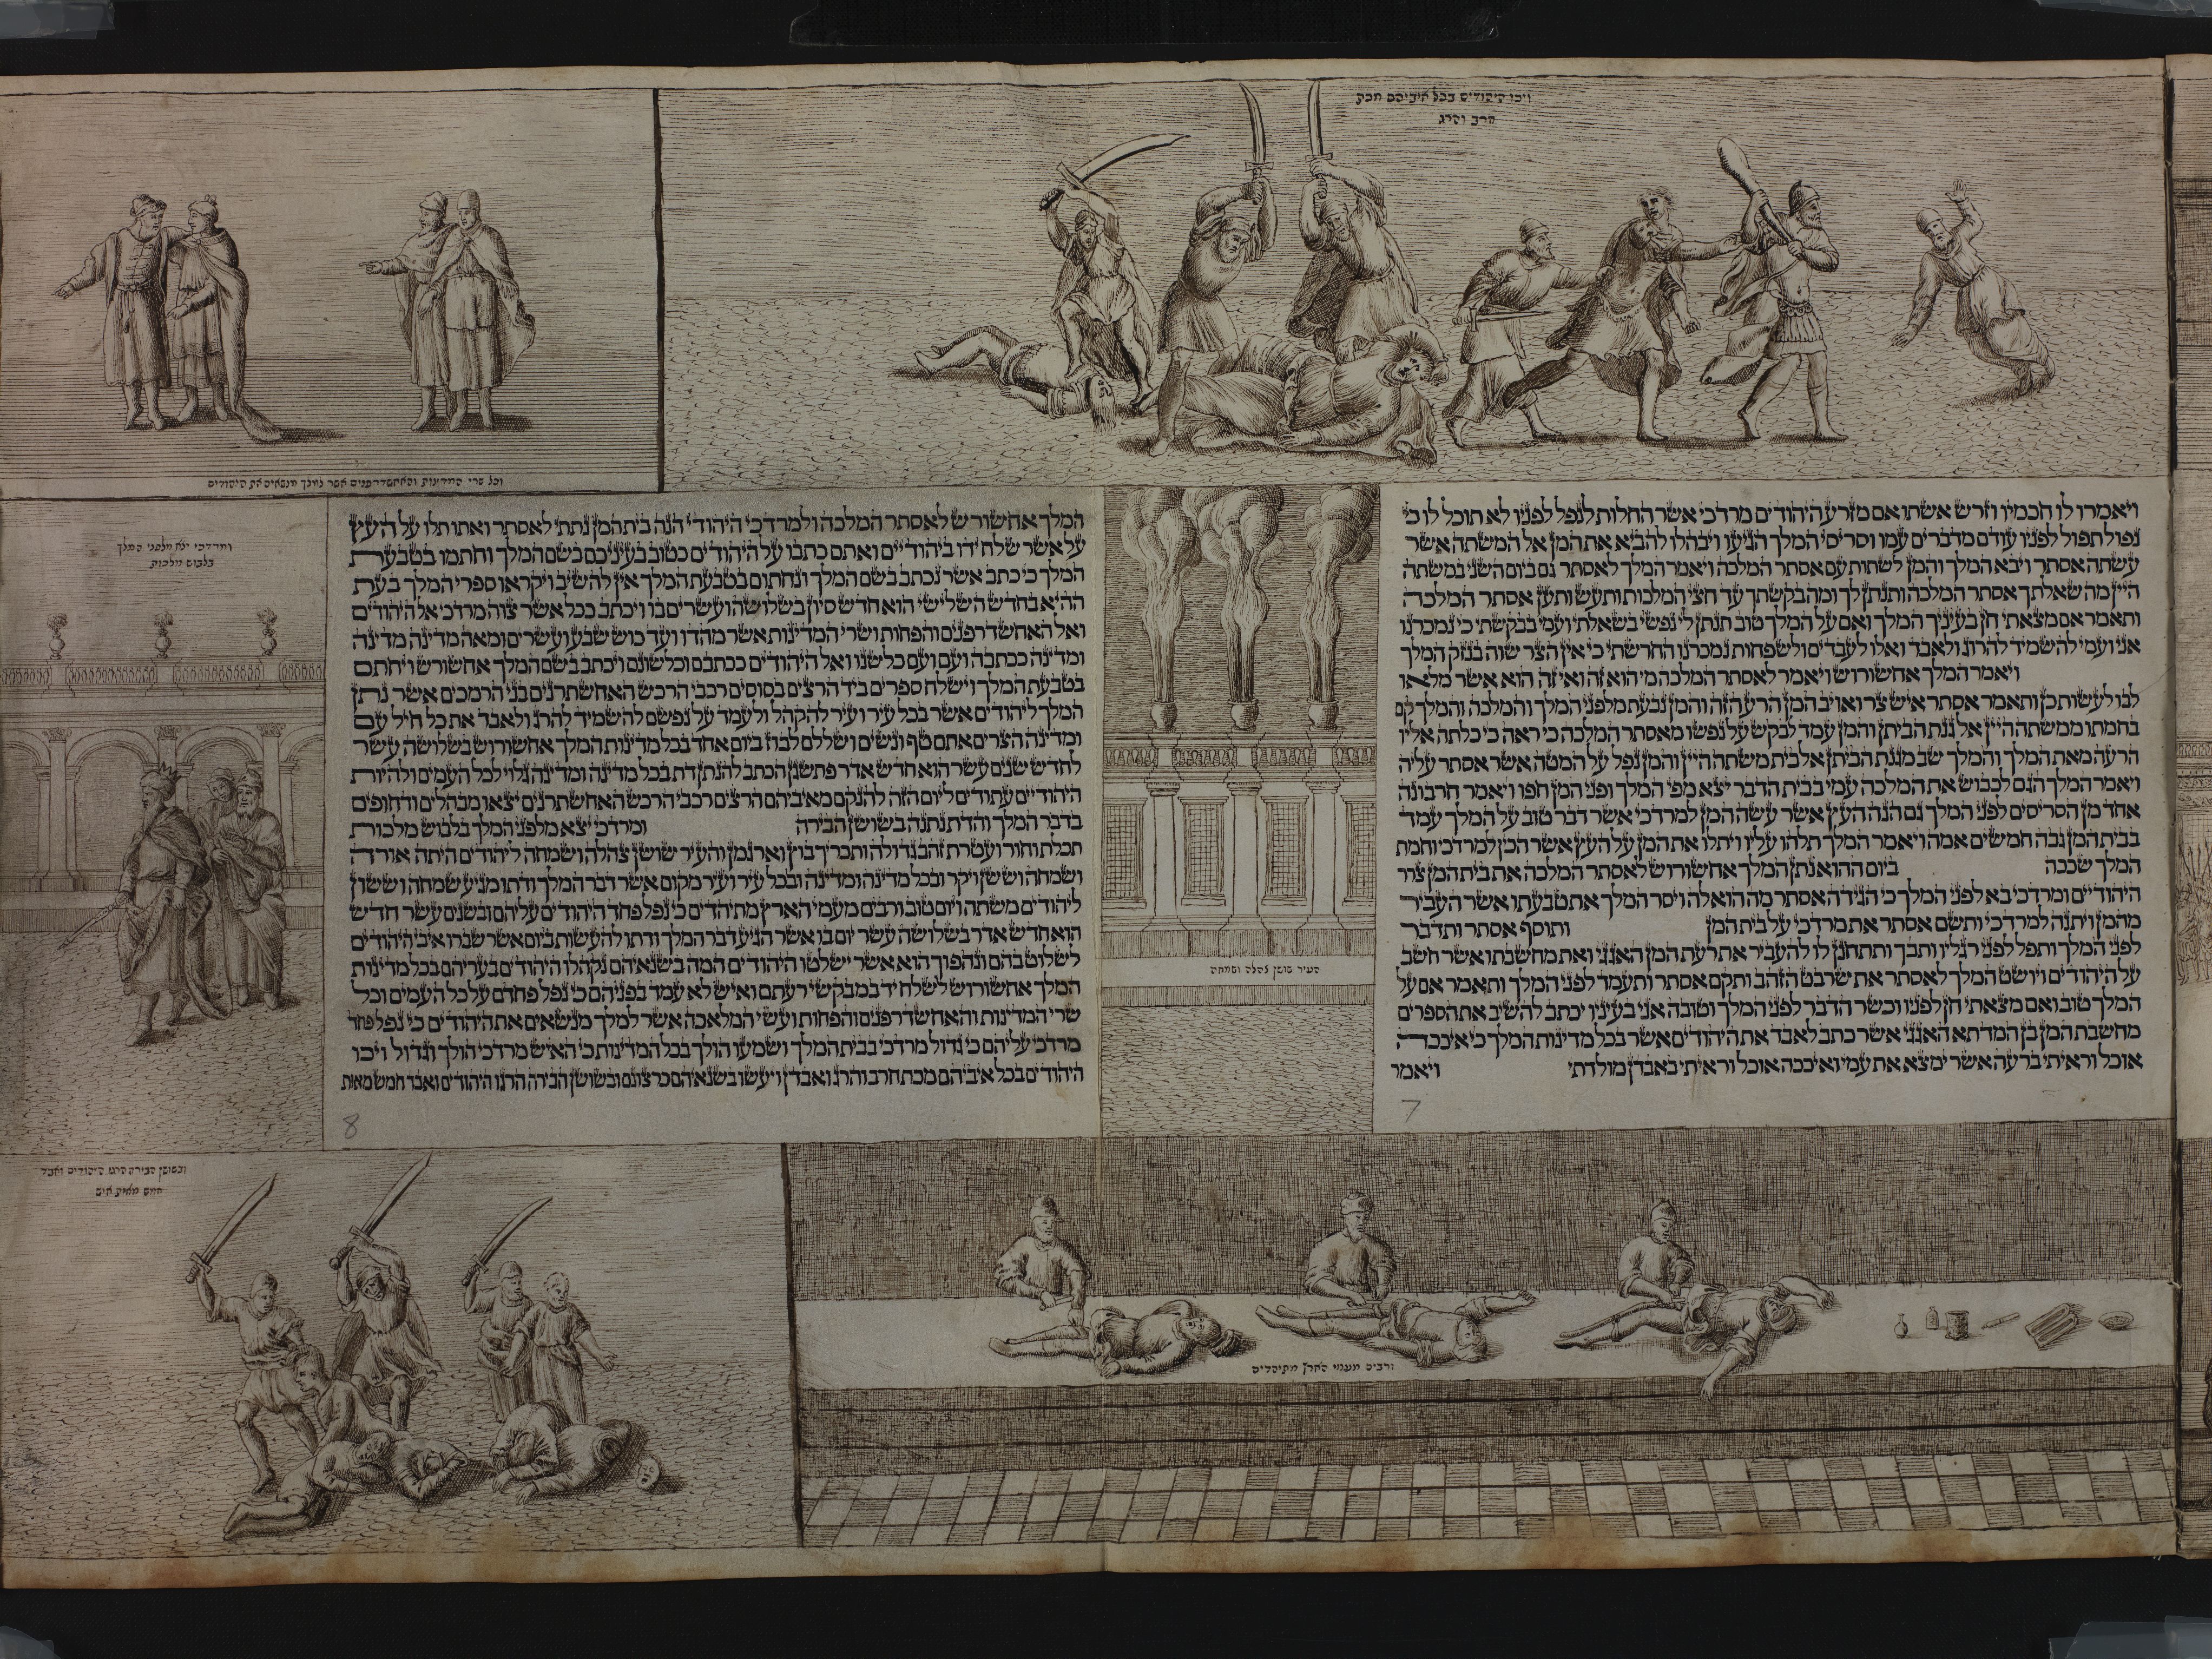 ויכו היהודים בכל איביהם מכת
חרב והרג
וכל שרי המדינות והאחשדרפנים אשר למלך מנשאים את היהודים
ויאמרו לו חכמיו וזרש אשתו אם מזרע היהודים מרדכי אשר החלות לנפל לפניו לא תוכל לו כי
נפול תפול לפניו עודם מדברים עמו וסריסי המלך הגיעו ויבהלו להביא את המן אל המשתה אשר
עשתה אסתר ויבא המלך והמן לשתות עם אסתר המלכה ויאמר המלך לאסתר גם ביום השני במשתה
היין מה שאלתך אסתר המלכה ותנתן לך ומה בקשתך עד חצי המלכות ותעש ותען אסתר המלכה
ותאמר אם מצאתי חן בעיניך המלך ואם על המלך טוב תנתן לי נפשי בשאלתי ועמי בבקשתי כי נמכרנו
אני ועמי להשמיד להרוג ולאבד ואלו לעבדים ולשפחות נמכרנו החרשתי כי אין הצר שוה בנזק המלך
ויאמר המלך אחשורוש ויאמר לאסתר המלכה מי הוא זה ואי זה הוא אשר מלאו
לבו לעשות כן ותאמר אסתר איש צר ואויב המן הרע הזה והמן נבעת מלפני המלך והמלכה והמלך קם
בחמתו ממשתה היין אל גנת הביתן והמן עמד לבקש על נפשו מאסתר המלכה כי ראה כי כלתה אליו
הרעה מאת המלך והמלך שב מגנת הביתן אל בית משתה היין והמן נפל על המטה אשר אסתר עליה
ויאמר המלך הגם לכבוש את המלכה עמי בבית הדבר יצא מפי המלך ופני המן חפו ויאמר חרבונה
אחד מן הסריסים לפני המלך גם הנה העץ אשר עשה המן למרדכי אשר דבר טוב על המלך עמד
בבית המן גבה חמשים אמה ויאמר המלך תלהו עליו ויתלו את המן על העץ אשר הכין למרדכי וחמת
המלך שככה ביום ההוא נתן המלך אחשורוש לאסתר המלכה את בית המן צרר
היהודיים ומרדכי בא לפני המלך כי הגידה אסתר מה הוא לה ויסר המלך את טבעתו אשר העביר
מהמן ויתנה למרדכי ותשם אסתר את מרדכי על בית המן ותוסף אסתר ותדבר
לפני המלך ותפל לפני רגליו ותבך ותתחנן לו להעביר את רעת המן האגגי ואת מחשבתו אשר חשב
על היהודים ויושט המלך לאסתר את שרבט הזהב ותקם אסתר ותעמד לפני המלך ותאמר אם על
המלך טוב ואם מצאתי חן לפניו וכשר הדבר לפני המלך וטובה אני בעיניו יכתב להשיב את הספרים
מחשבת המן בן המדתא האגגי אשר כתב לאבד את היהודים אשר בכל מדינות המלך כי איככה
אוכל וראיתי ברעה אשר ימצא את עמי ואיככה אוכל וראיתי באבדן מולדתי ויאמר
7
העיר שושן צהלה ושמחה
המלך אחשורש לאסתר המלכה ולמרדכי היהודי הנה בית המן נתתי לאסתר ואתו תלו על העץ
על אשר שלח ידו ביהודיים ואתם כתבו על היהודים כטוב בעיניכם בשם המלך וחתמו בטבעת
המלך כי כתב אשר נכתב בשם המלך ונחתום בטבעת המלך אין להשיב ויקראו ספרי המלך בעת
ההיא בחדש השלישי הוא חדש סיון בשלושה ועשרים בו ויכתב ככל אשר צוה מרדכי אל היהודים
ואל האחשדרפנים והפחות ושרי המדינות אשר מהדו ועד כוש שבע ועשרים ומאה מדינה מדינה
ומדינה ככתבה ועם ועם כלשנו ואל היהודים ככתבם וכלשונם ויכתב בשם המלך אחשורש ויחתם
בטבעת המלך וישלח ספרים ביד הרצים בסוסים רכבי הרכש האחשתרנים בני הרמכים אשר נתן
המלך ליהודים אשר בכל עיר ועיר להקהל ולעמד על נפשם להשמיד להרג ולאבד את כל חיל עם
ומדינה הצרים אתם טף ונשים ושללם לבוז ביום אחד בכל מדינות המלך אחשורוש בשלושה עשר
לחדש שנים עשר הוא חדש אדר פתשגן הכתב להנתן דת בכל מדינה ומדינה גלוי לכל העמים ולהיות
היהודיים עתודים ליום הזה להנקם מאיביהם הרצים רכבי הרכש האחשתרנים יצאו מבהלים ודחופים
בדבר המלך והדת נתנה בשושן הבירה ומרדכי יצא מלפני המלך בלבוש מלכות
תכלת וחור ועטרת זהב גדולה ותכריך בוץ וארגמן והעיר שושן צהלה ושמחה ליהודים היתה אורה
ושמחה וששן ויקר ובכל מדינה ומדינה ובכל עיר ועיר מקום אשר דבר המלך ודתו מגיע שמחה וששון
ליהודים משתה ויום טוב ורבים מעמי הארץ מתיהדים כי נפל פחד היהודים עליהם ובשנים עשר חדש
הוא חדש אדר בשלושה עשר יום בו אשר הגיע דבר המלך ודתו להעשות ביום אשר שברו איבי היהודים
לשלוט בהם ונהפוך הוא אשר ישלטו היהודים המה בשנאיהם נקהלו היהודים בעריהם בכל מדינות
המלך אחשורוש לשלח יד במבקשי רעתם ואיש לא עמד בפניהם כי נפל פחדם על כל העמים וכל
שרי המדינות והאחשדרפנים והפחות ועשי המלאכה אשר למלך מנשאים את היהודים כי נפל פחד
מרדכי עליהם כי גדול מרדכי בבית המלך ושמעו הולך בכל המדינות כי האיש מרדכי הולך וגדול ויכו
היהודים בכל איביהם מכת חרב והרג ואבדן ויעשו בשנאיהם כרצונם ובשושן הבירה הרגו היהודים ואבד חמש מאות
8
ומרדכי יצא מלפני המלך
בלבוש מלכות
ורבים מעמי הארץ מתיהדים
ובשושן הבירה הרגו היהודים ואבד
חמש מאות איש